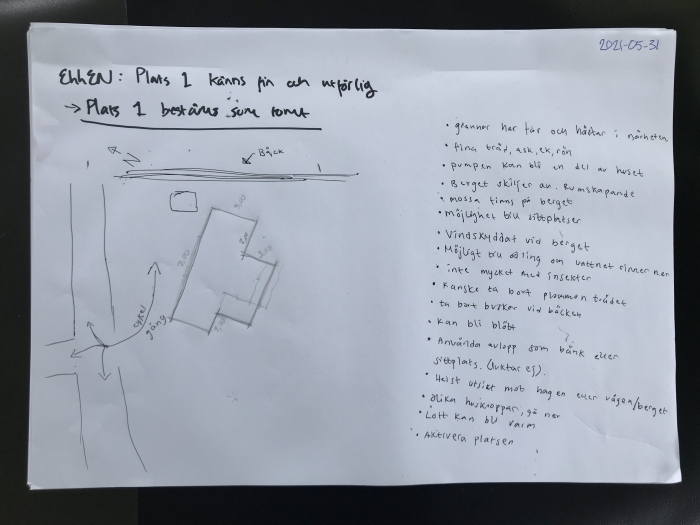 2021-05-31
EhhEN: Plats 1 känns fin och utförlig
→ Plats 1 bestäms som tomt
Bäck
3,00
2,00
cykel
gång
• grannor har får och hästar i närheten
• fina träd, ask, ek, rön
• pumpen kan bli en del av huset
• Berget skiljer av. Rumskapande
• mossa finns på berget
• möjlighet bli sittplatser
• Vindskyddat vid berget
• Möjligt bli odling om vattnet rinner ner
• inte mycket med insekter
• Kanske ta bort plommon trädet
• ta bort buskar vid bäcken
• Kan bli blött
• Använda avlopp som bänk eller
sittplats. (luktar ej).
• Helst utsikt mot hagen eller vägen/berget
• olika huskroppar, gå ner
• Loft kan bli varm
• Aktivera platsen